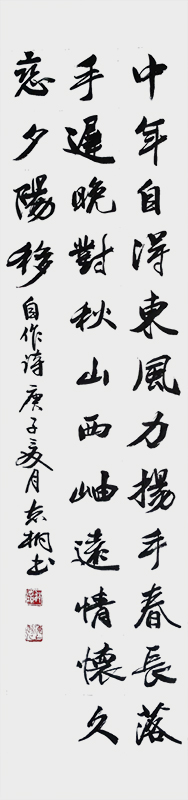 中年自得東風力揚手春長落
手遲晚對秋山西岫遠情懷久
戀夕陽移 自作詩庚子夏月志桐书